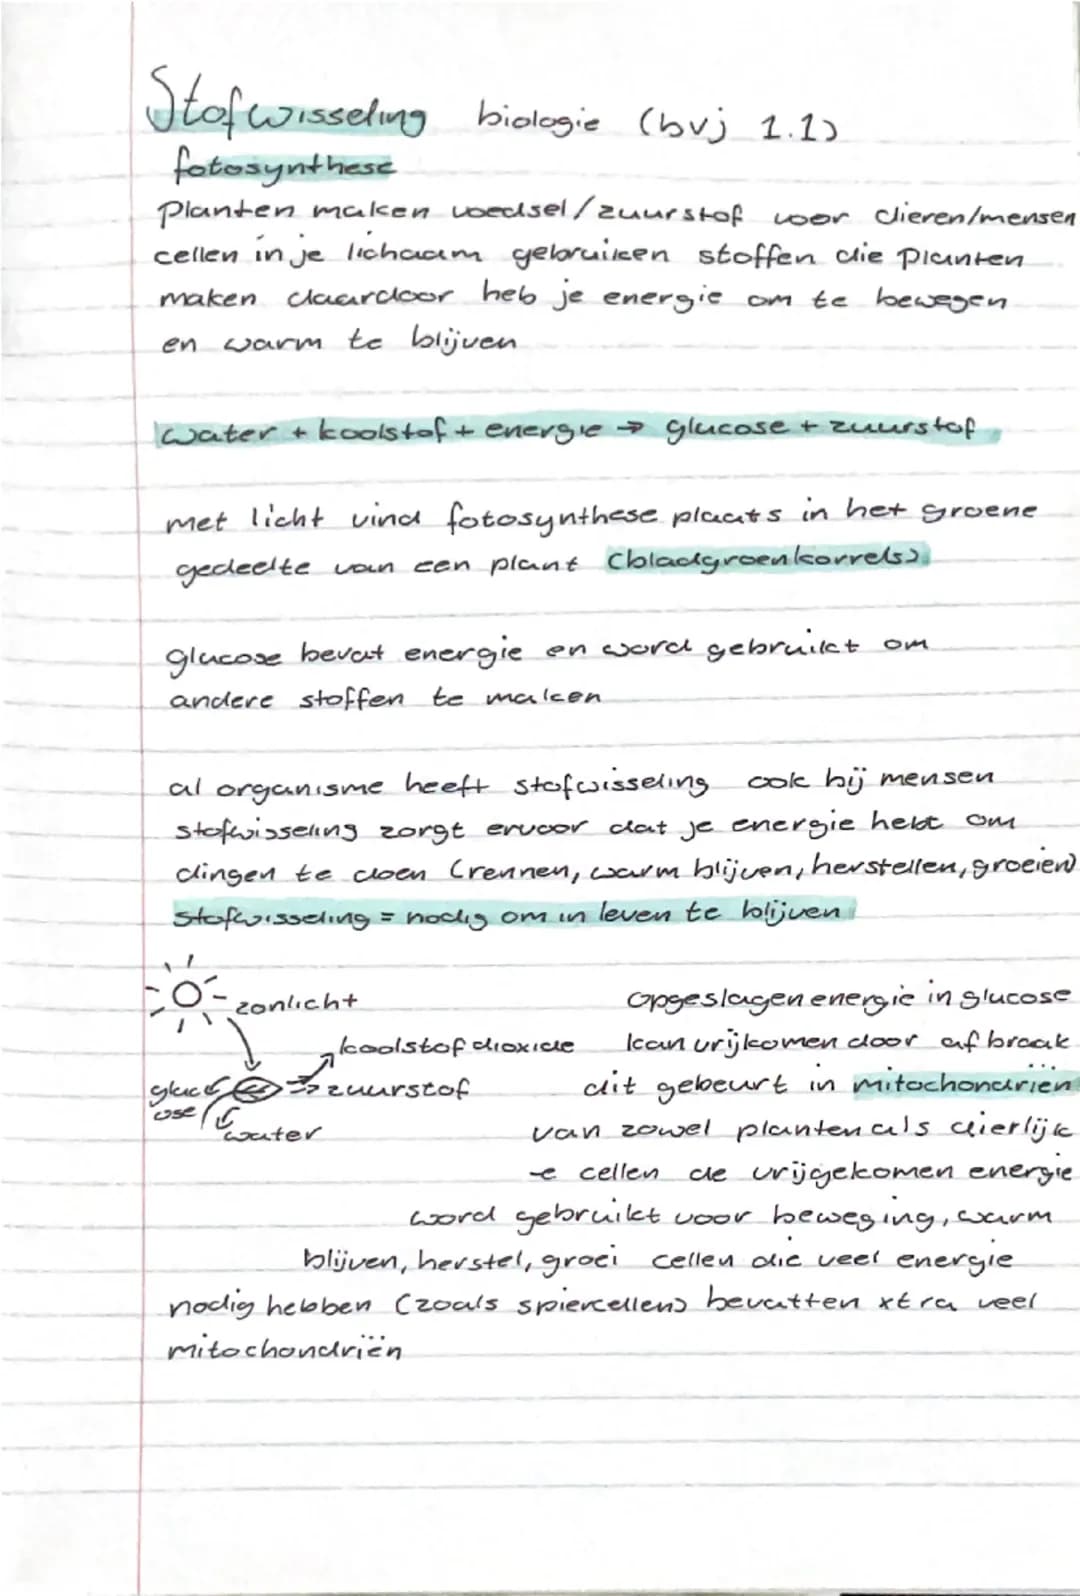 Stofwisseling biologie (bvj 1.1)
fotosynthese
Planten maken voedsel/zuurstof voor dieren/mensen
cellen in je lichaam gebruiken stoffen die planten
maken daardoor heb je energie om te bewegen
en warm te blijven
water + koolstof + energie → glucose + zuurstof
met licht vind fotosynthese plaats in het groene
gedeelte van een plant (bladgroenkorrels)
glucose bevat energie en word gebruikt om
andere stoffen te maken
al organisme heeft stofwisseling ook bij mensen
stofwisseling zorgt ervoor dat je energie hebt om
dingen te doen (rennen, warm blijven, herstellen, groeien)
stofwisseling = nodig om in leven te blijven
zonlicht
koolstofdioxide
glucose
zuurstof
water
opgeslagen energie in glucose
kan vrijkomen door afbraak
dit gebeurt in mitochondriën
van zowel planten als dierlijk
-e cellen de vrijgekomen energie
word gebruikt voor beweging, warm
blijven, herstel, groei cellen die veel energie
nodig hebben (zoals spiercellen) bevatten xtra veel
mitochondriën